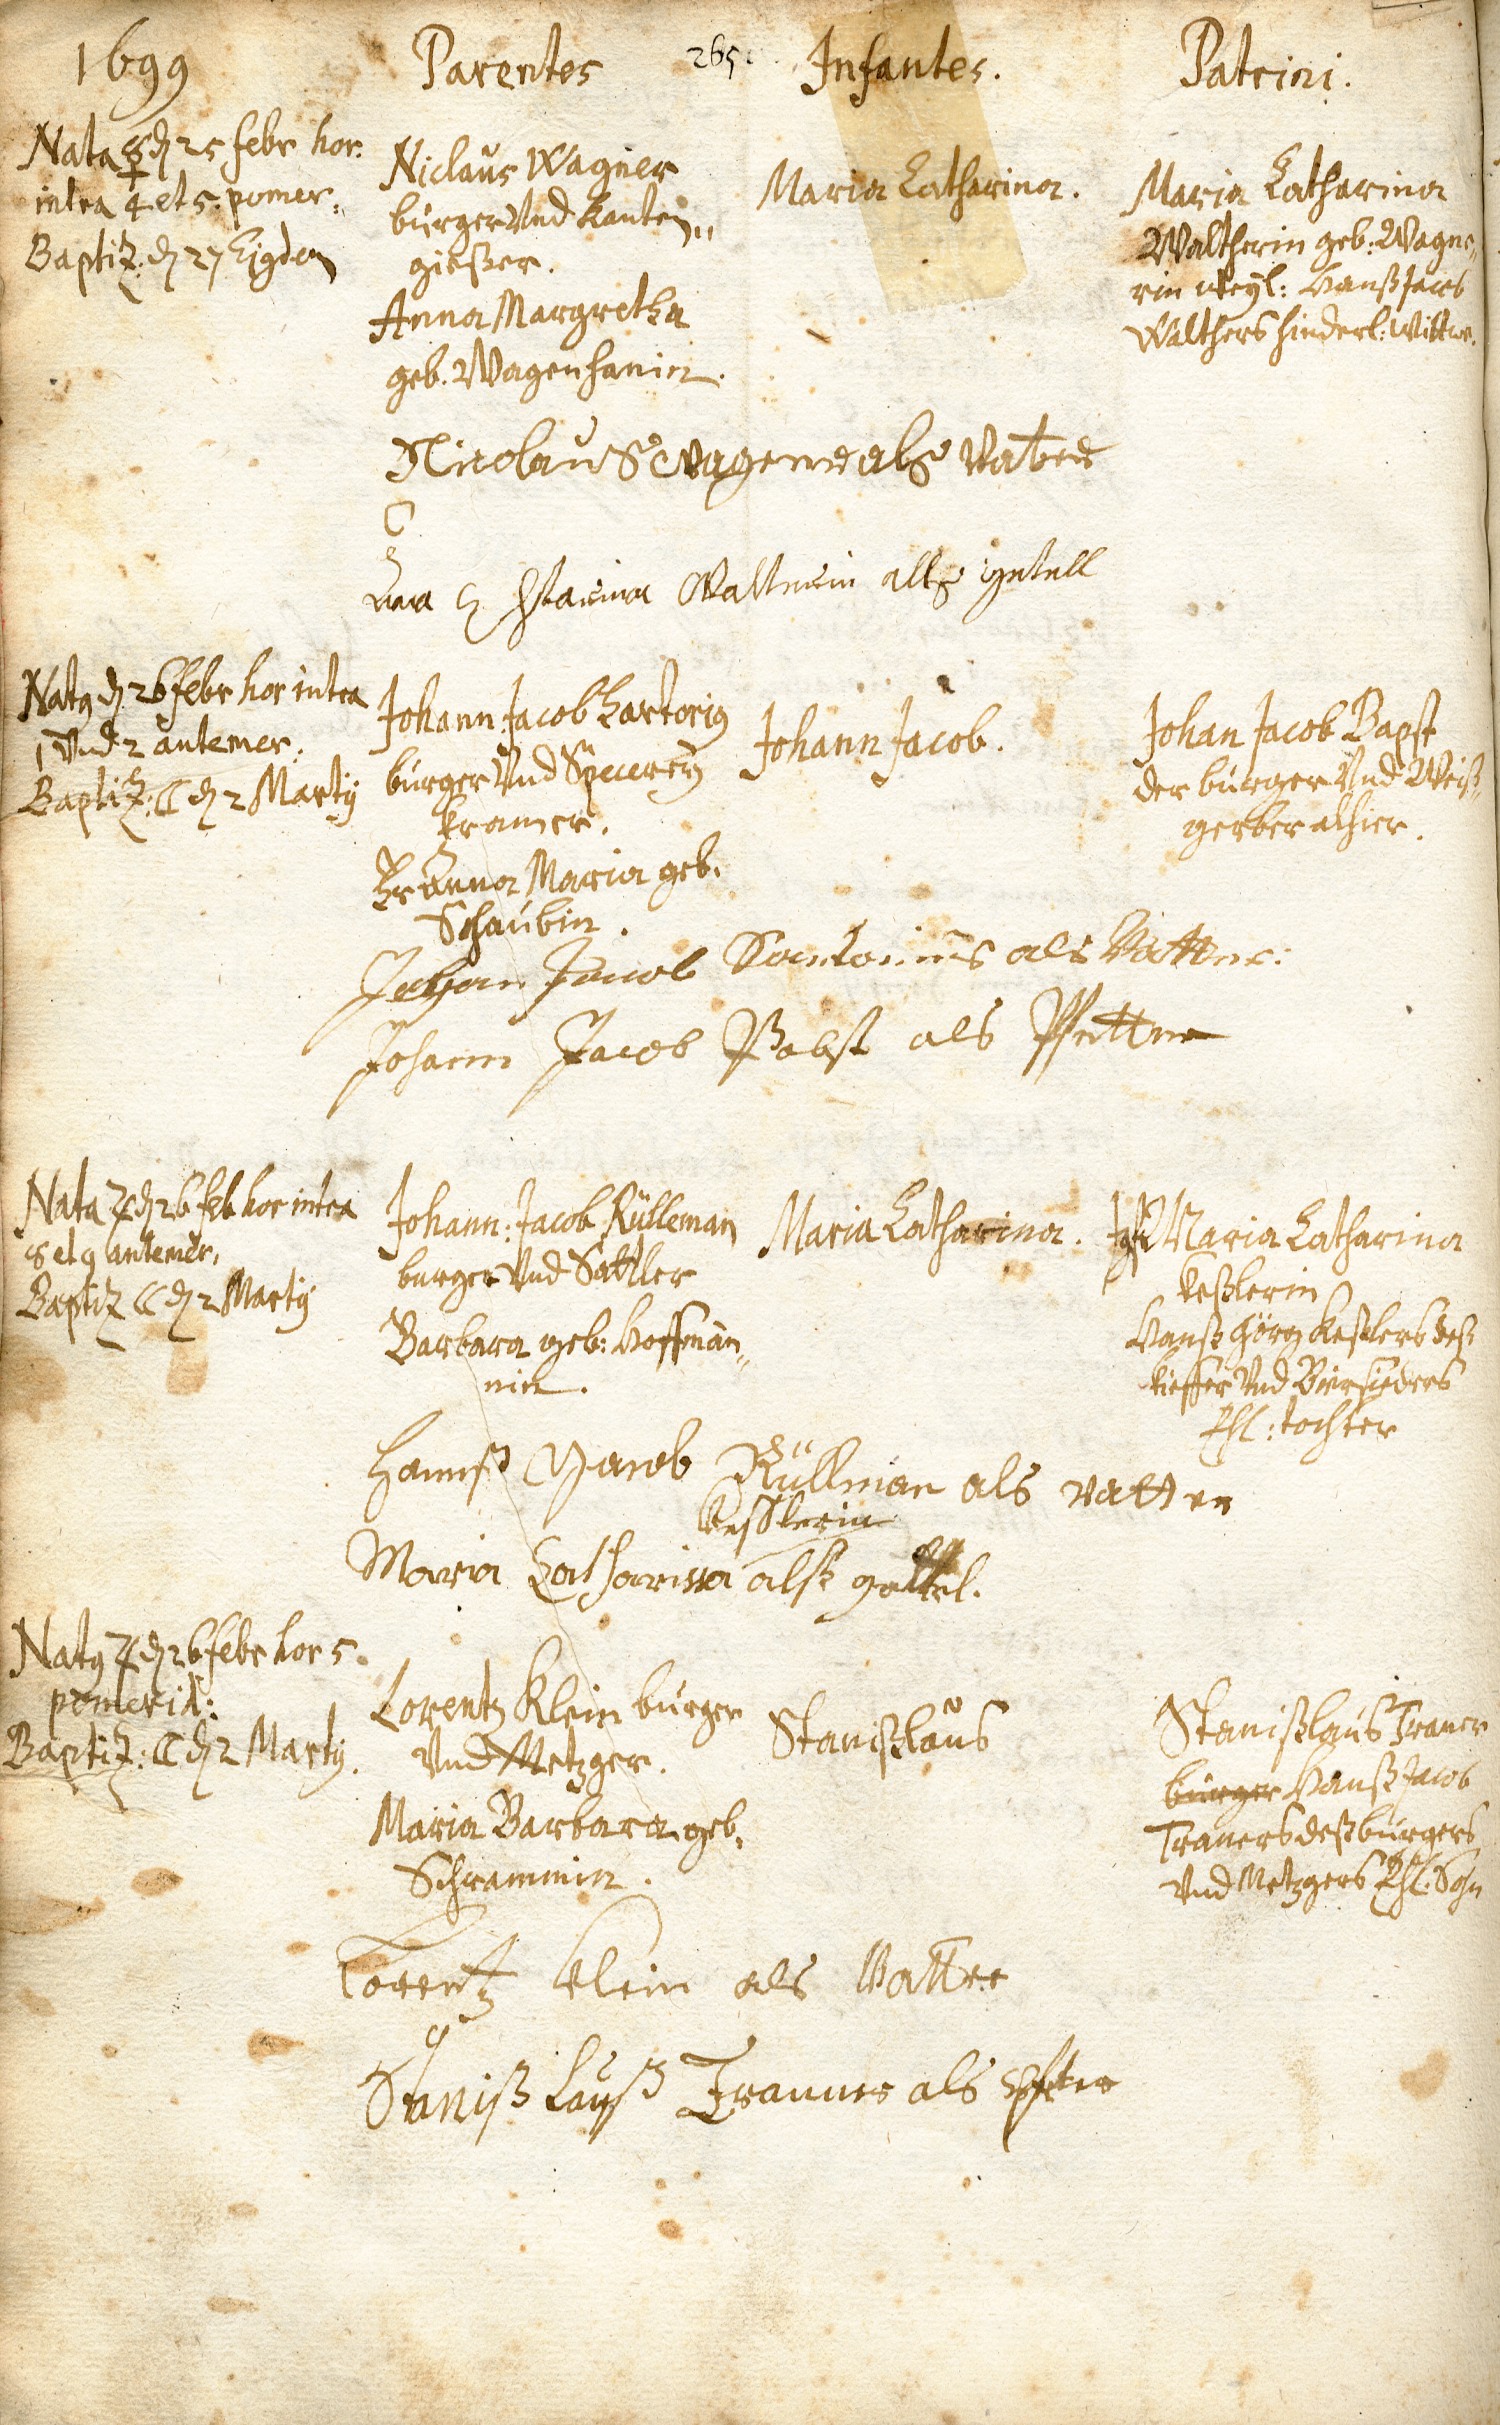 1699 Parentes 265. Infantes. Patrini.
Nata ☿ d. 25 febr hor.
intra 4 et 5. pomer:
Baptiz: d. 27 Eigdem
Niclaus Wagner
burger Und Kanten„
gießer.
Anna Margretha
geb. Wagenhanin.
Maria Catharina.
Maria Catharina
Waltherin geb: Wagne„
rin weyl: Hanß Jacob
Walthers hinderl: Wittwe.
Nicolaus wagener alß Vatter
Catharina als gettell
Natus d. 26 febr hor intra
1 Und 2 antemer:
Baptiz: ☾ d. 2 Martij
Johann: Jacob Sartorius
burger Und Specerey
kramer.
Fr Anna Maria geb.
Schaubin.
Johann Jacob.
Johan Jacob Bapst
der burger Und Weiß„
gerber alhier.
Johan Jacob Sartorius als Vatter:
Johann Jacob Pabst als Pfetter
Nata ♃ d. 26 feb hor intra
8 et 9 antemer,
Baptiz ☾ d. 2 Martij
Johann: Jacob Rülleman
burger Und Sattler
Barbara geb: Hoffmän„
nin.
Maria Catharina.
Jgfr Maria Catharina
Keßlerin
Hanß Görg Keßlers deß
kieffer Und Biersieders
Ehl: tochter
Hannß Jacob Rüllman als vatter
Kesslerin
Maria Catharina alß gettel.
Natus ♃ d. 26 febr hor 5.
pomerid:
Baptiz: ☾ d. 2 Martij.
Lorentz Klein burger
Und Metzger.
Maria Barbara geb.
Schrammin.
Stanißlaus
Stanißlaus Traner
burger Hanß Jacob
Traners deß burgers
Und Metzgers Ehl: Sohn
Lorentz Klein als Vatter
Staniß Lauß Trauner als Pfetter